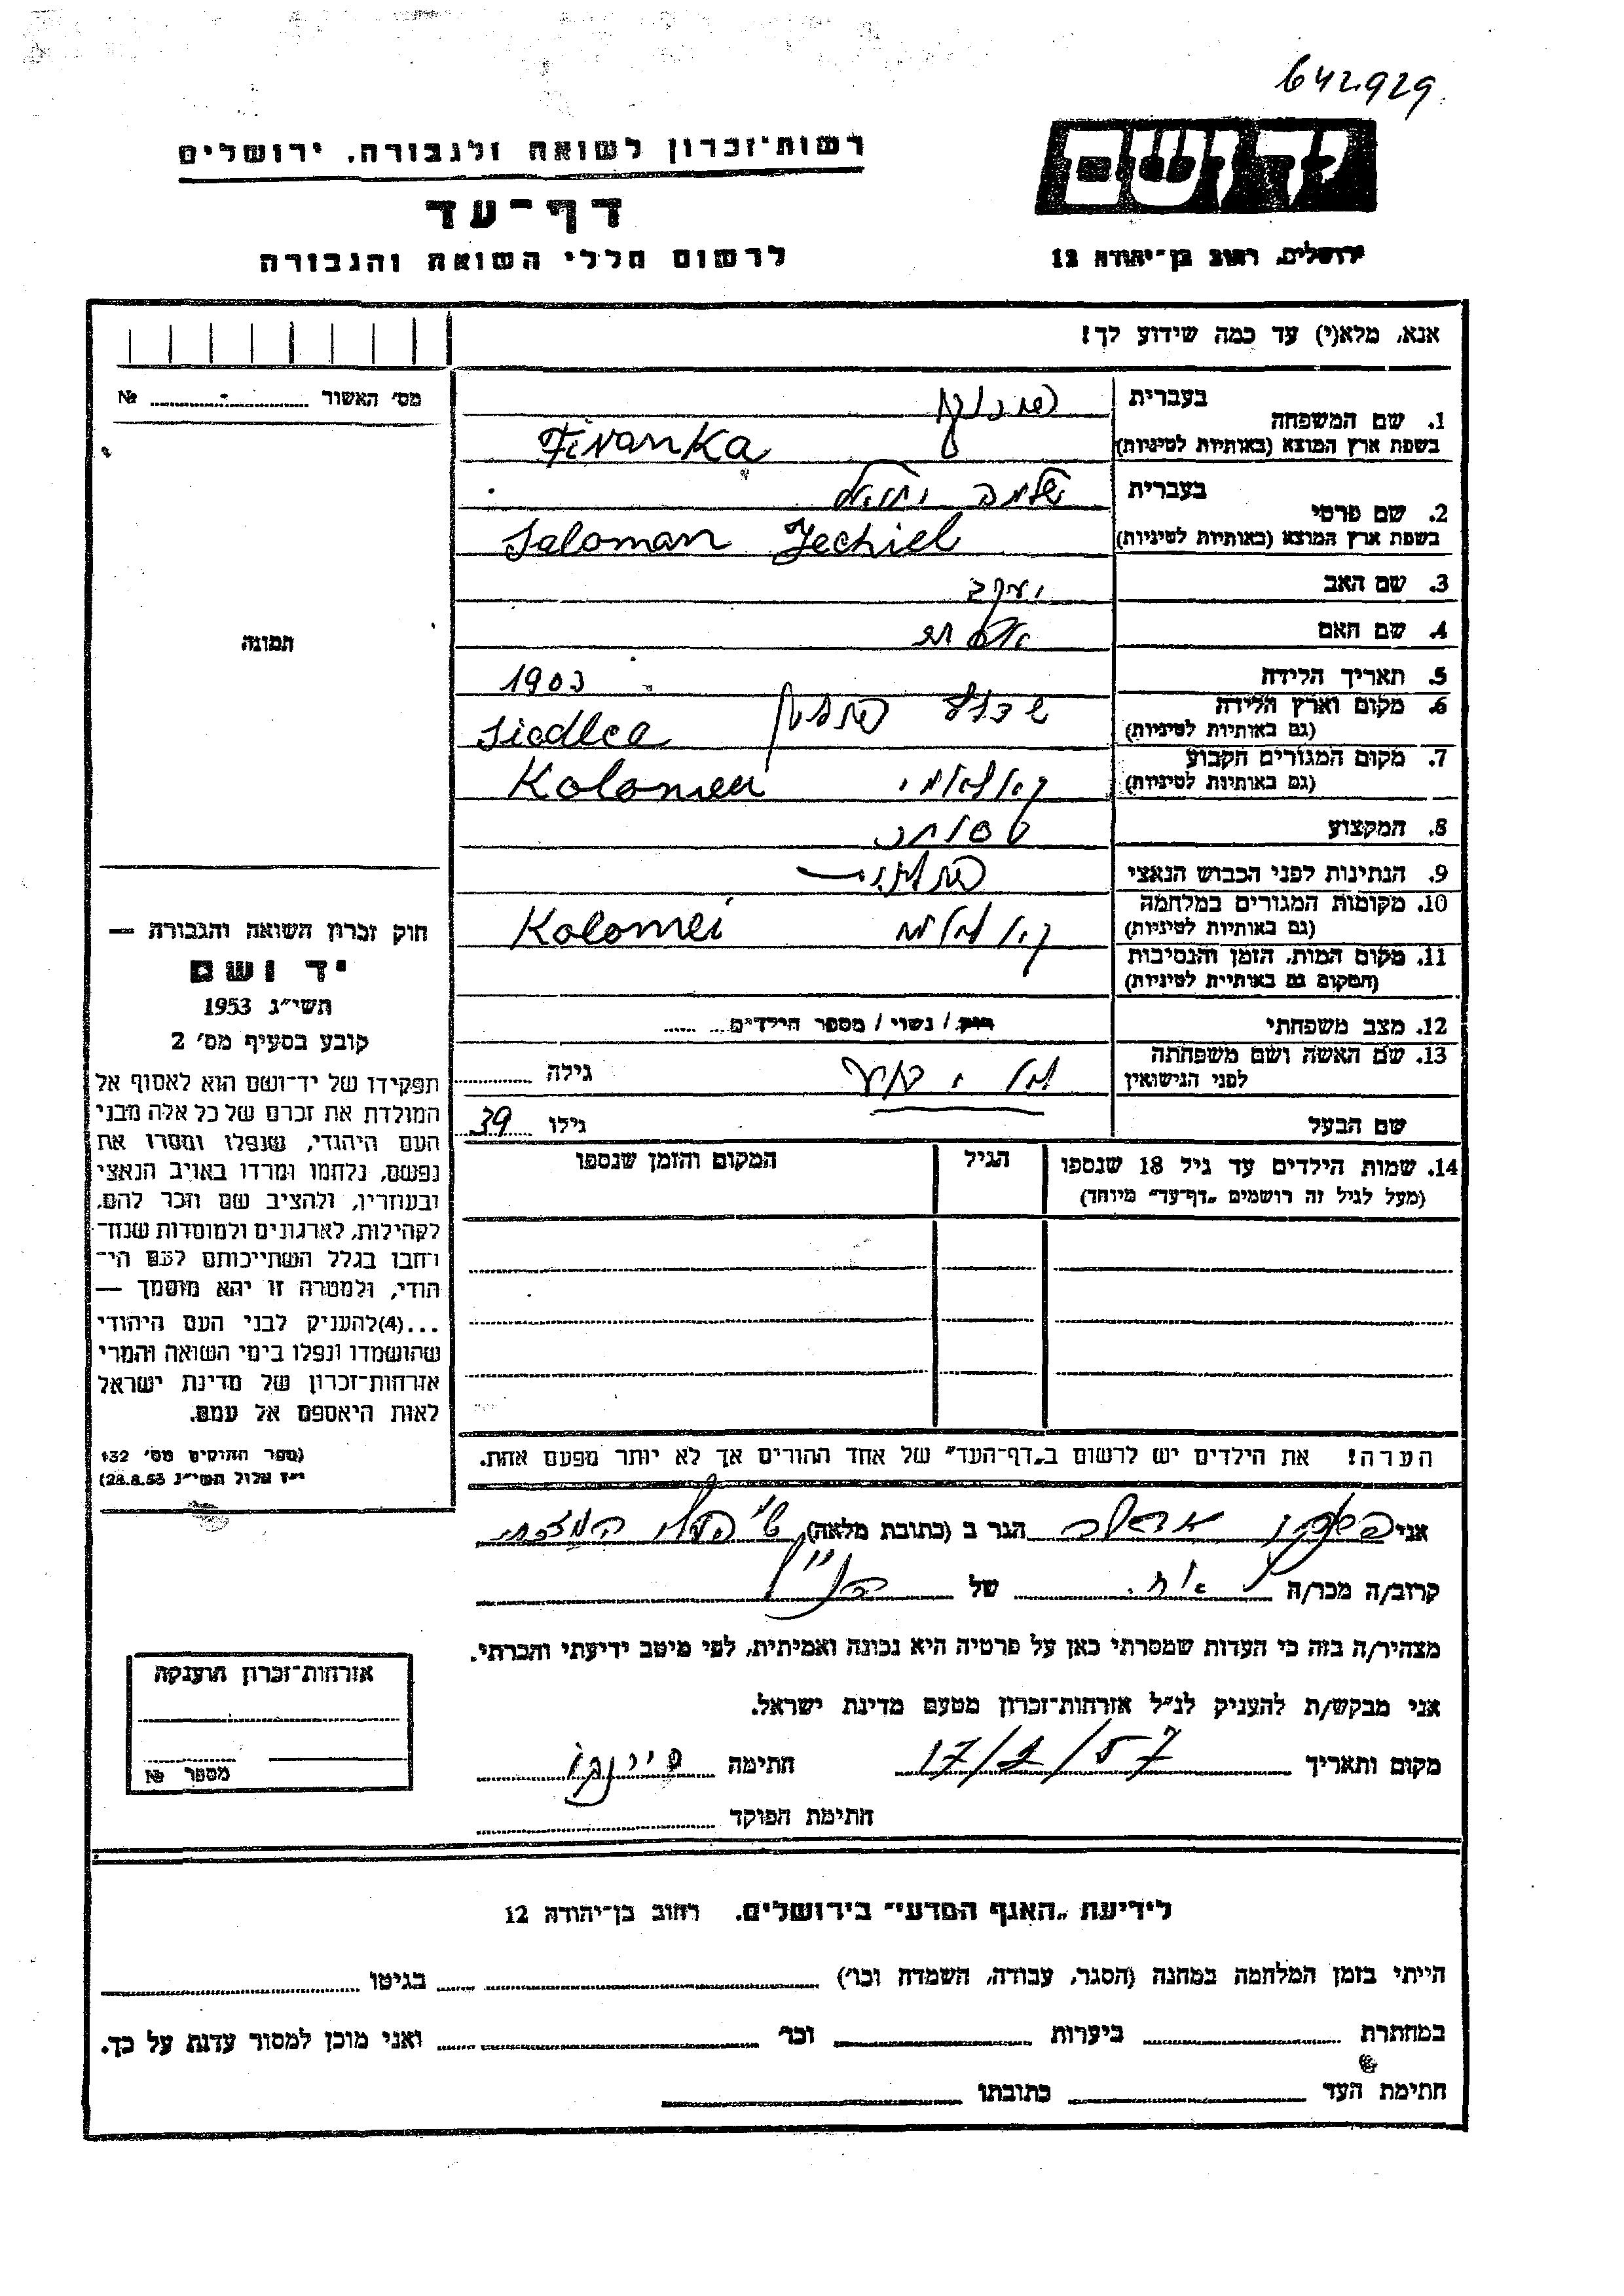 642929
רשות־זכרון לשואה ולגבורה, ירושלים
יד ושם
דף־עד
לרשום חללי השואה והגבורה
ירושלים, רחוב בן־יהודה 12
אנא, מלא(י) עד כמה שידוע לך!
מס׳ האשור № 
1. שם המשפחה
בעברית
בשפת ארץ המוצא (באותיות לטיניות) Fivanka
2. שם פרטי
בעברית שלמה יחיאל
בשפת ארץ המוצא (באותיות לטיניות) Saloman Jechiel
3. שם האב יעקב
4. שם האם
תמונה
5. תאריך הלידה 1903
6. מקום וארץ הלידה
(גם באותיות לטיניות) Siedlce
7. מקום המגורים הקבוע
(גם באותיות לטיניות) Kolomea
8. המקצוע
9. הנתינות לפני הכבוש הנאצי
10. מקומות המגורים במלחמה
(גם באותיות לטיניות) Kolomei
11. מקום המות, הזמן והנסיבות
(המקום גם באותיות לטיניות)
12. מצב משפחתי רוק / נשוי / מספר הילדים
13. שם האשה ושם משפחתה
לפני הנישואין גילה
שם הבעל גילו 39
14. שמות הילדים עד גיל 18 שנספו הגיל המקום והזמן שנספו
(מעל לגיל זה רושמים „דף־עד״ מיוחד)
חוק זכרון השואה והגבורה —
יד ושם
תשי״ג 1953
קובע בסעיף מס׳ 2
תפקידו של יד־ושם הוא לאסוף אל
המולדת את זכרם של כל אלה מבני
העם היהודי, שנפלו ומסרו את
נפשם, נלחמו ומרדו באויב הנאצי
ובעוזריו, ולהציב שם וזכר להם,
לקהילות, לארגונים ולמוסדות שנח־
רחבו בגלל השתייכותם לעם הי־
הודי, ולמטרה זו יהא מוסמך —
...(4)להעניק לבני העם היהודי
שהושמדו ונפלו בימי השואה והמרי
אזרחות־זכרון של מדינת ישראל
לאות היאספם אל עמם.
(ספר החוקים מס׳ 132
י״ז אלול תשי״ג 28.8.53)
הערה! את הילדים יש לרשום ב„דף־העד״ של אחד ההורים אך לא יותר מפעם אחת.
אני הגר ב (כתובת מלאה)
קרוב/ה מכר/ה של
מצהיר/ה בזה כי העדות שמסרתי כאן על פרטיה היא נכונה ואמיתית, לפי מיטב ידיעתי והכרתי.
אני מבקש/ת להעניק לנ״ל אזרחות־זכרון מטעם מדינת ישראל.
מקום ותאריך 17/2/57 חתימה
חתימת הפוקד
אזרחות־זכרון הוענקה
מספר №
לידיעת „האגף המדעי״ בירושלים, רחוב בן־יהודה 12
הייתי בזמן המלחמה במחנה (הסגר, עבודה, השמדה וכו׳) בגיטו
במחתרת ביערות וכו׳ ואני מוכן למסור עדות על כך.
חתימת העד כתובתו